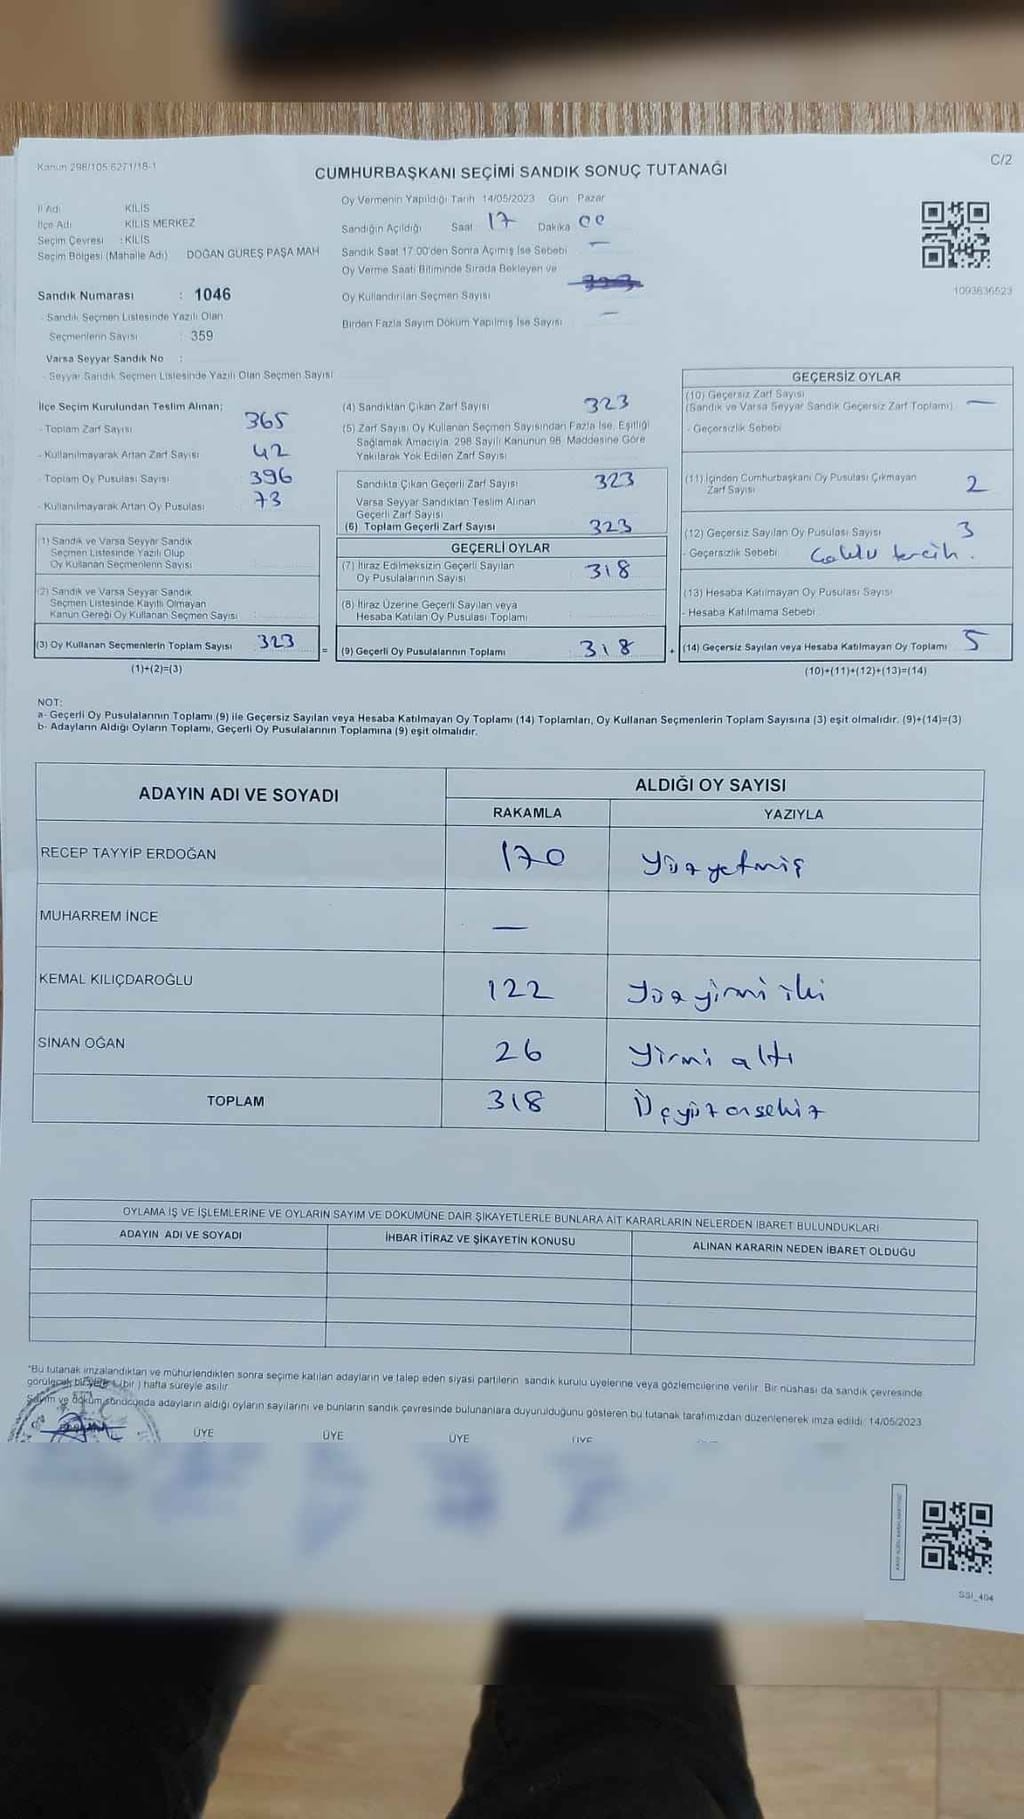 Kanun 298/105 6271/18-1
C/2
CUMHURBAŞKANI SEÇİMİ SANDIK SONUÇ TUTANAĞI
İl Adı KİLİS
İlçe Adı KİLİS MERKEZ
Seçim Çevresi : KİLİS
Seçim Bölgesi (Mahalle Adı) DOĞAN GÜREŞ PAŞA MAH
Sandık Numarası : 1046
- Sandık Seçmen Listesinde Yazılı Olan
Seçmenlerin Sayısı : 359
Varsa Seyyar Sandık No :
- Seyyar Sandık Seçmen Listesinde Yazılı Olan Seçmen Sayısı
Oy Vermenin Yapıldığı Tarih 14/05/2023 Gün Pazar
Sandığın Açıldığı Saat 17 Dakika 00
Sandık Saat 17:00'den Sonra Açımış İse Sebebi —
Oy Verme Saati Bitiminde Sırada Bekleyen ve
Oy Kullandırılan Seçmen Sayısı
Birden Fazla Sayım Döküm Yapılmış İse Sayısı —
1093636523
İlçe Seçim Kurulundan Teslim Alınan;
- Toplam Zarf Sayısı 365
- Kullanılmayarak Artan Zarf Sayısı 42
- Toplam Oy Pusulası Sayısı 396
- Kullanılmayarak Artan Oy Pusulası 73
(1) Sandık ve Varsa Seyyar Sandık
Seçmen Listesinde Yazılı Olup
Oy Kullanan Seçmenlerin Sayısı
(2) Sandık ve Varsa Seyyar Sandık
Seçmen Listesinde Kayıtlı Olmayan
Kanun Gereği Oy Kullanan Seçmen Sayısı
(3) Oy Kullanan Seçmenlerin Toplam Sayısı 323
(1)+(2)=(3)
(4) Sandıktan Çıkan Zarf Sayısı 323
(5) Zarf Sayısı Oy Kullanan Seçmen Sayısından Fazla İse, Eşitliği
Sağlamak Amacıyla, 298 Sayılı Kanunun 98. Maddesine Göre
Yakılarak Yok Edilen Zarf Sayısı
Sandıkta Çıkan Geçerli Zarf Sayısı 323
Varsa Seyyar Sandıktan Teslim Alınan
Geçerli Zarf Sayısı
(6) Toplam Geçerli Zarf Sayısı 323
GEÇERLİ OYLAR
(7) İtiraz Edilmeksizin Geçerli Sayılan
Oy Pusulalarının Sayısı 318
(8) İtiraz Üzerine Geçerli Sayılan veya
Hesaba Katılan Oy Pusulası Toplamı
= (9) Geçerli Oy Pusulalarının Toplamı 318
GEÇERSİZ OYLAR
(10) Geçersiz Zarf Sayısı
(Sandık ve Varsa Seyyar Sandık Geçersiz Zarf Toplamı) —
- Geçersizlik Sebebi
(11) İçinden Cumhurbaşkanı Oy Pusulası Çıkmayan
Zarf Sayısı 2
(12) Geçersiz Sayılan Oy Pusulası Sayısı 3
- Geçersizlik Sebebi Çoklu tercih.
(13) Hesaba Katılmayan Oy Pusulası Sayısı
- Hesaba Katılmama Sebebi
+ (14) Geçersiz Sayılan veya Hesaba Katılmayan Oy Toplamı 5
(10)+(11)+(12)+(13)=(14)
NOT:
a- Geçerli Oy Pusulalarının Toplamı (9) ile Geçersiz Sayılan veya Hesaba Katılmayan Oy Toplamı (14) Toplamları, Oy Kullanan Seçmenlerin Toplam Sayısına (3) eşit olmalıdır. (9)+(14)=(3)
b- Adayların Aldığı Oyların Toplamı, Geçerli Oy Pusulalarının Toplamına (9) eşit olmalıdır.
ADAYIN ADI VE SOYADI
ALDIĞI OY SAYISI
RAKAMLA YAZIYLA
RECEP TAYYİP ERDOĞAN 170 Yüzyetmiş
MUHARREM İNCE —
KEMAL KILIÇDAROĞLU 122 Yüzyirmi iki
SİNAN OĞAN 26 Yirmi altı
TOPLAM 318 Üçyüz onsekiz
OYLAMA İŞ VE İŞLEMLERİNE VE OYLARIN SAYIM VE DÖKÜMÜNE DAİR ŞİKAYETLERLE BUNLARA AİT KARARLARIN NELERDEN İBARET BULUNDUKLARI
ADAYIN ADI VE SOYADI İHBAR İTİRAZ VE ŞİKAYETİN KONUSU ALINAN KARARIN NEDEN İBARET OLDUĞU
*Bu tutanak imzalandıktan ve mühürlendikten sonra seçime katılan adayların ve talep eden siyasi partilerin sandık kurulu üyelerine veya gözlemcilerine verilir. Bir nüshası da sandık çevresinde
görülecek bir yere 1 (bir) hafta süreyle asılır
Sayım ve döküm sonucunda adayların aldığı oyların sayılarını ve bunların sandık çevresinde bulunanlara duyurulduğunu gösteren bu tutanak tarafımızdan düzenlenerek imza edildi. 14/05/2023
ÜYE ÜYE ÜYE ÜYE
SSI_404